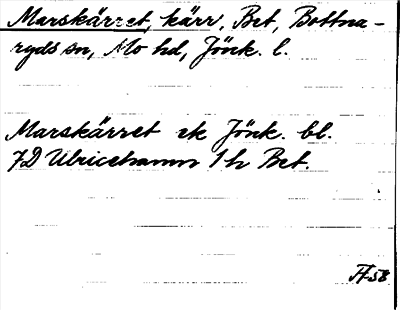 Marskärret, kärr, Bet, Bottna-
ryds sn, Mo hd, Jönk. l.
Marskärret ek Jönk. bl.
7D Ulricehamn 1 h Bet.